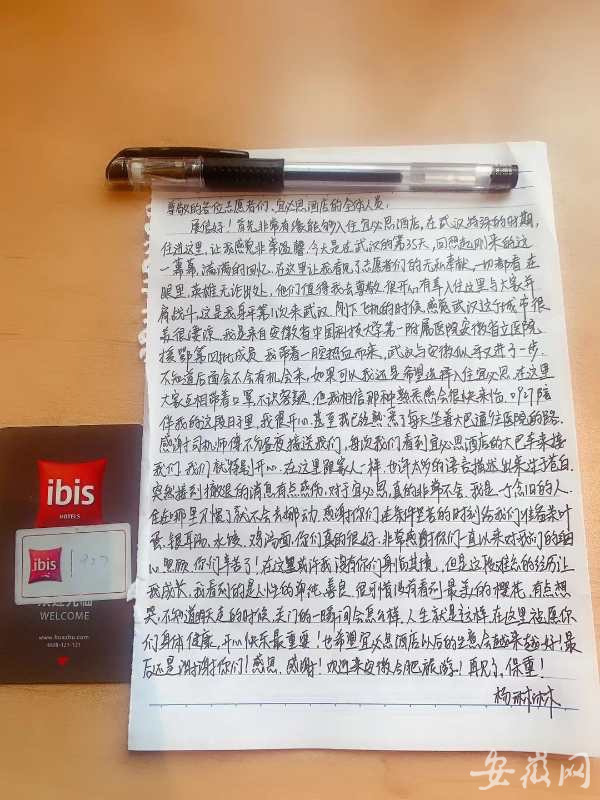 尊敬的各位志愿者们、宜必思酒店的全体人员:
展信好!首先非常有缘能够入住宜必思酒店,在武汉特殊的时期,
住进这里,让我感觉非常温馨,今天是在武汉的第35天,回想起刚来的这
一幕幕,满满的回忆,在这里让我看见了志愿者们的无私奉献,一切都看在
眼里,英雄无论出处,他们值得我去尊敬,很开心有幸入住这里与大家并
肩战斗,这是我身平第1次来武汉,刚下飞机的时候,感觉武汉这个城市很
美很凄凉,我是来自安徽省中国科技大学第一附属医院安徽省立医院
援鄂第四批成员,我带着一腔热血而来,武汉与安徽似乎又进了一步
不知道后面会不会有机会来,如果可以我还是希望选择入住宜必思,在这里
大家互相带着口罩不识容颜,但我相信那种熟悉感会很快来临,927陪
伴我的这段日子里,我很开心,甚至我已经熟悉了每天坐着大巴通往医院的路,
感谢司机师傅不分昼夜接送我们,每次我们看到宜必思酒店的大巴车来接
我们,我们就特别开心,在这里跟家人一样,也许太多的语言描述出来过于苍白,
突然接到撤退的消息,有点感伤,对于宜必思,真的非常不舍,我是一个念旧的人,
住在那里习惯了就不会去挪动,感谢你们在条件坚苦的时刻给我们准备茶叶
蛋、银耳汤、水饺、鸡汤面,你们真的很好,非常感谢你们一直以来对我们的细
心照顾,你们辛苦了!在这里或许我没有你们身临其境,但是这段难忘的经历让
我成长,我看到的是人性的单纯、善良,很可惜没有看到最美的樱花,有点想
哭,不知道明天走的时候,关门的一瞬间会怎么样,人生就是这样,在这里祝愿你
们身体健康,开心快乐最重要!也希望宜必思酒店以后的生意会越来越好!最
后还是谢谢你们!感恩,感谢!欢迎来安徽合肥旅游!再见了,保重!
杨琳琳
ibis
HOTELS
ibis
927
欢迎光临
WELCOME
www.huazhu.com
4008-121-121
安徽网